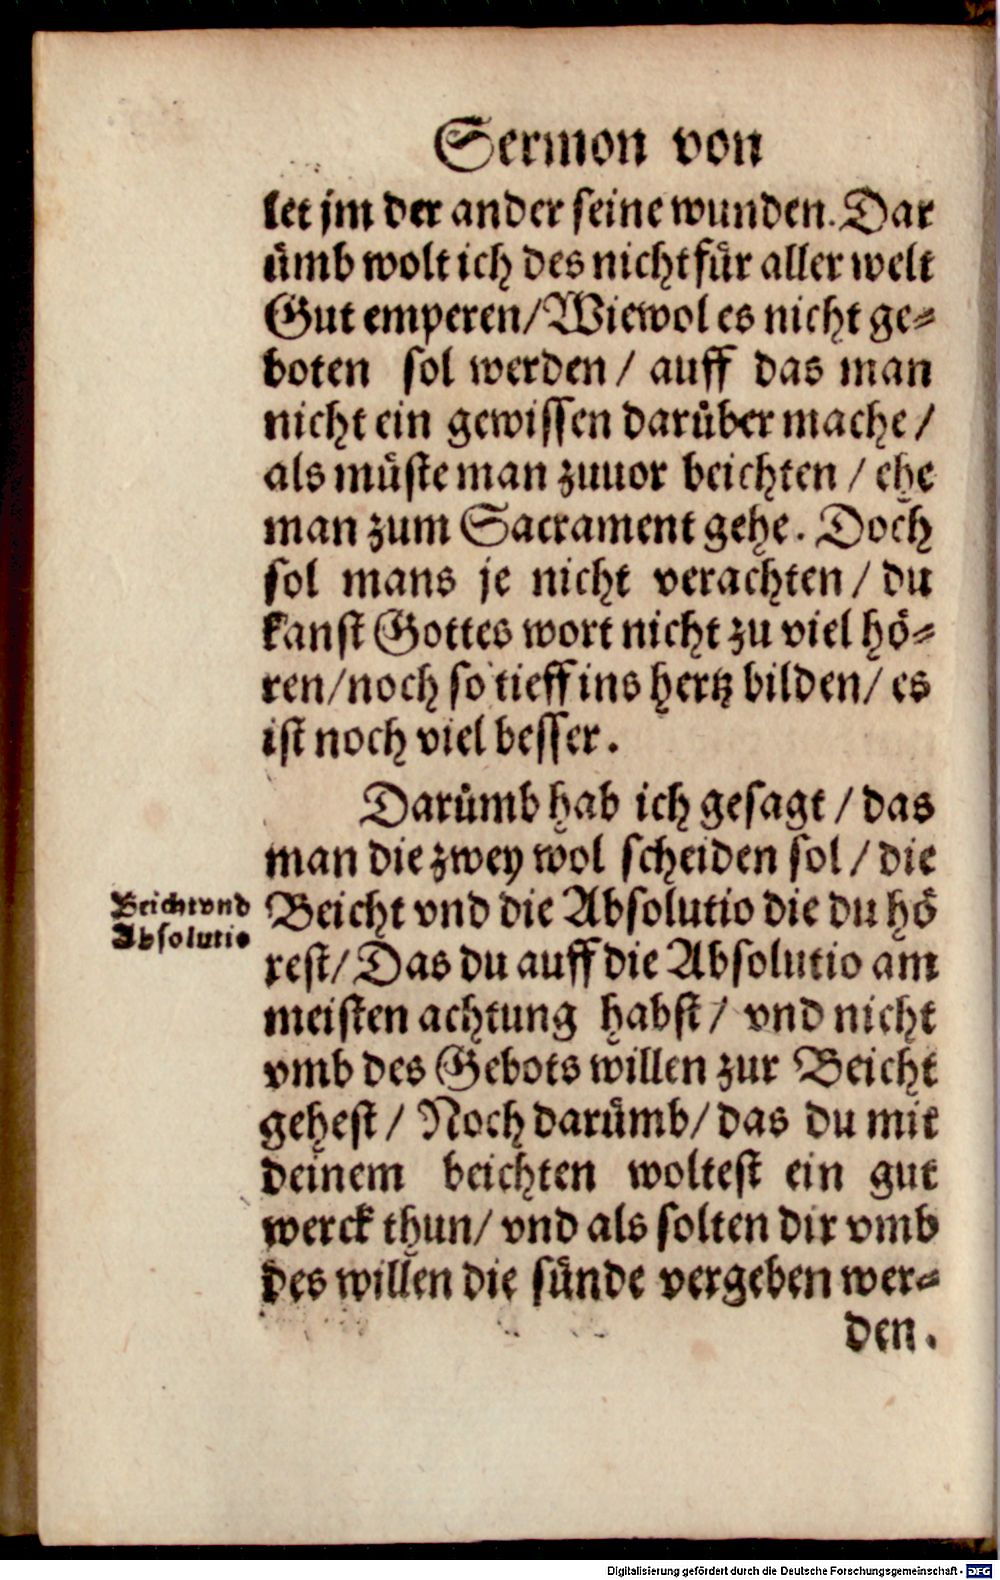 Sermon von
let jm der ander seine wunden. Dar
uͤmb wolt ich des nicht fuͤr aller welt
Gut emperen/ Wiewol es nicht ge⸗
boten sol werden / auff das man
nicht ein gewissen daruͤber mache /
als muͤste man zuuor beichten / ehe
man zum Sacrament gehe. Doch
sol mans je nicht verachten / du
kanst Gottes wort nicht zu viel hoͤ⸗
ren/ noch so tieff ins hertz bilden/ es
ist noch viel besser.
Daruͤmb hab ich gesagt / das
man die zwey wol scheiden sol / die
Beicht vnd
Absolutio
Beicht vnd die Absolutio die du hoͤ
rest/ Das du auff die Absolutio am
meisten achtung habst / vnd nicht
vmb des Gebots willen zur Beicht
gehest / Noch daruͤmb/ das du mit
deinem beichten woltest ein gut
werck thun/ vnd als solten dir vmb
des willen die suͤnde vergeben wer⸗
den.
Digitalisierung gefördert durch die Deutsche Forschungsgemeinschaft - DFG